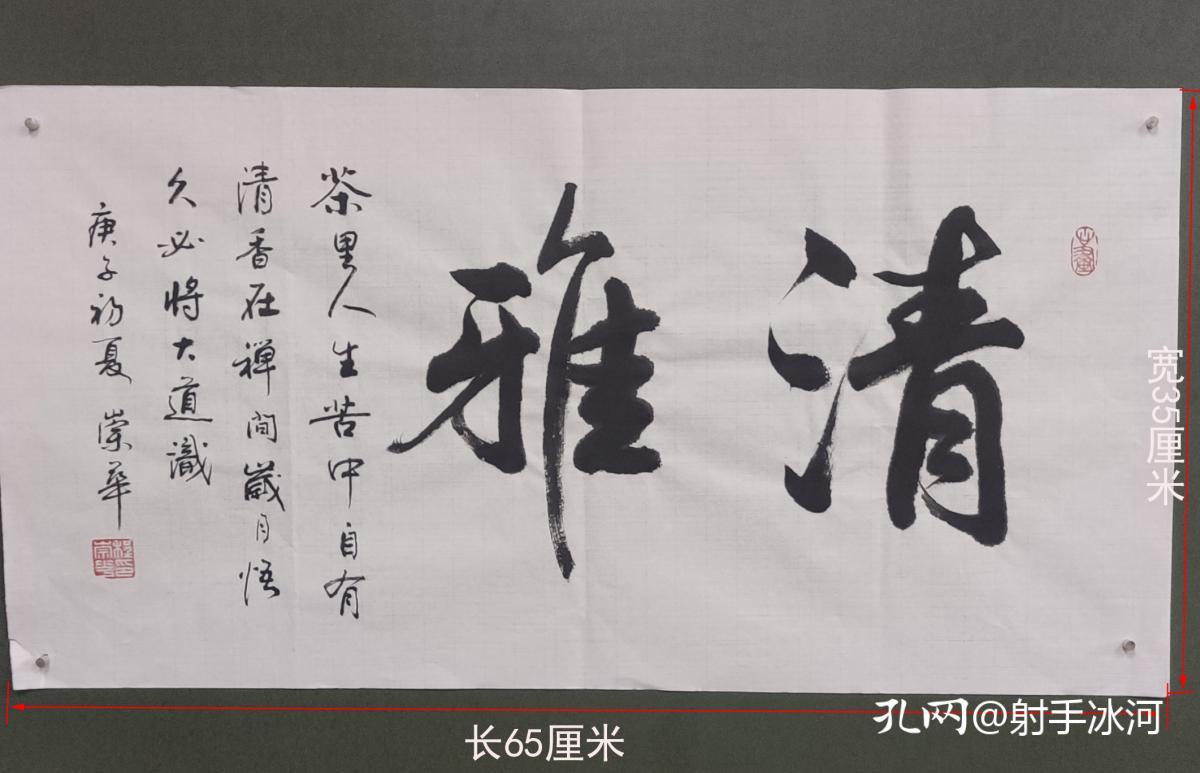 清雅
茶里人生苦中自有
清香在禅间歲月悟
久必将大道識
庚子初夏 崇華
宽35厘米
长65厘米
孔网@射手冰河